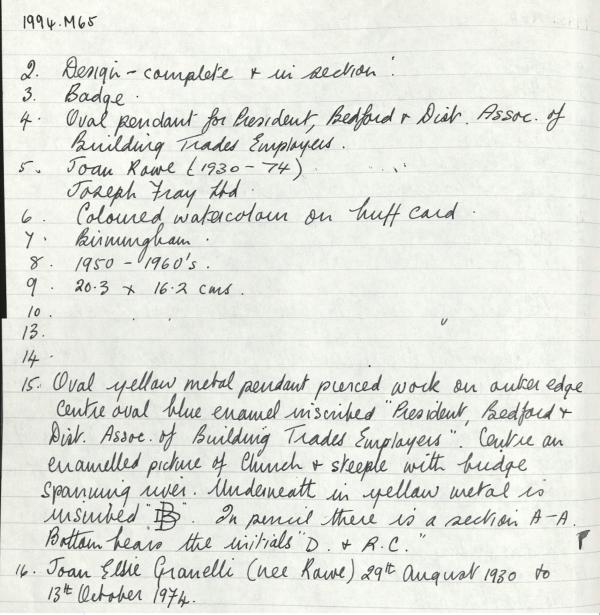 1994.M65
2. Design - complete + in section.
3. Badge.
4. Oval pendant for President, Bedford + Dist. Assoc. of
Building Trades Employers.
5. Joan Rawe (1930-74)
Joseph Fray Ltd.
6. Coloured watercolour on buff card.
7. Birmingham.
8. 1950-1960's.
9. 20.3 x 16.2 cms.
10.
13.
14.
15. Oval yellow metal pendant pierced work on outer edge
Centre oval blue enamel inscribed "President, Bedford +
Dist. Assoc. of Building Trades Employers". Centre an
enamelled picture of Church + steeple with bridge
spanning river. Underneath in yellow metal is
inscribed "B". In pencil there is a section A-A.
Bottom bears the initials "D. + R.C."
16. Joan Elsie Granelli (nee Rawe) 29th August 1930 to
13th October 1974.